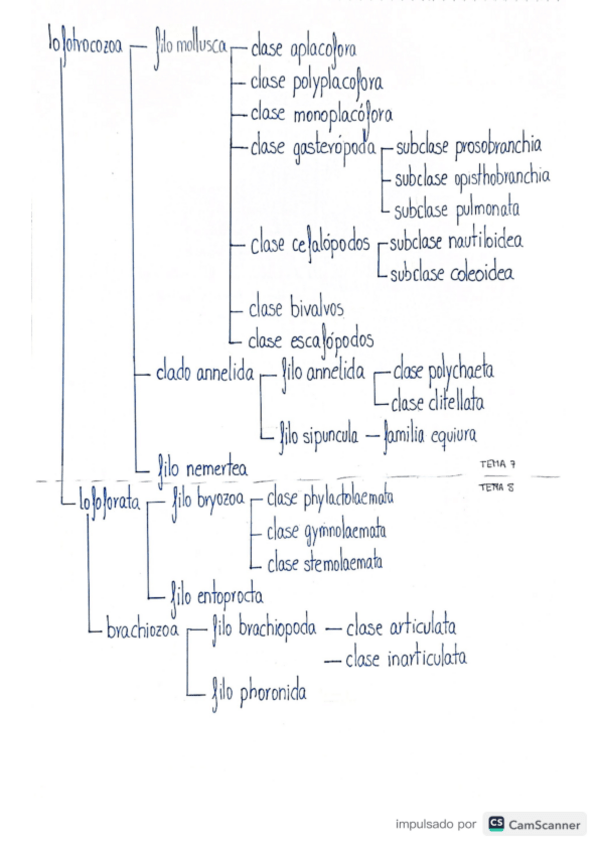 lofotrocozoa filo mollusca clase aplacofora
clase polyplacofora
clase monoplacófora
clase gasterópoda subclase prosobranchia
subclase opisthobranchia
subclase pulmonata
clase cefalópodos subclase nautiloidea
subclase coleoidea
clase bivalvos
clase escafópodos
clado annelida filo annelida clase polychaeta
clase clitellata
filo sipuncula familia equiura
filo nemertea TEMA 7
TEMA 8
lofoforata filo bryozoa clase phylactolaemata
clase gymnolaemata
clase stemolaemata
filo entoprocta
brachiozoa filo brachiopoda clase articulata
clase inarticulata
filo phoronida
impulsado por CS CamScanner